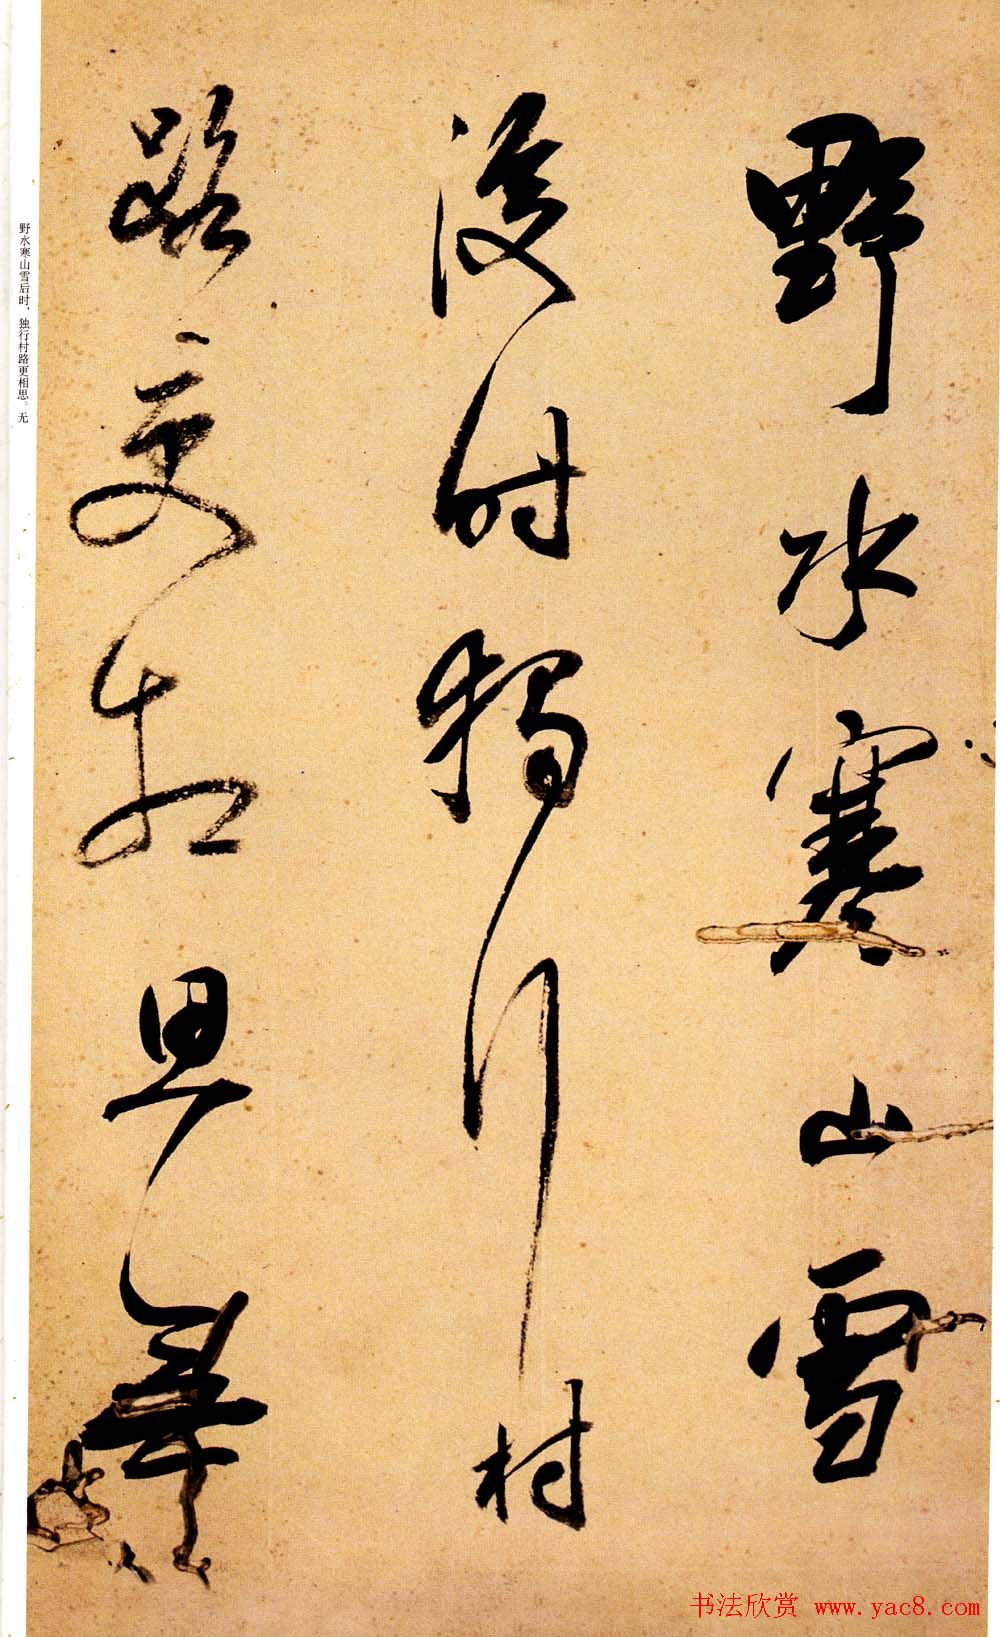 野水寒山雪
後时獨行村
路更相思無
野水寒山雪后时，独行村路更相思。无
书法欣赏 www.yac8.com